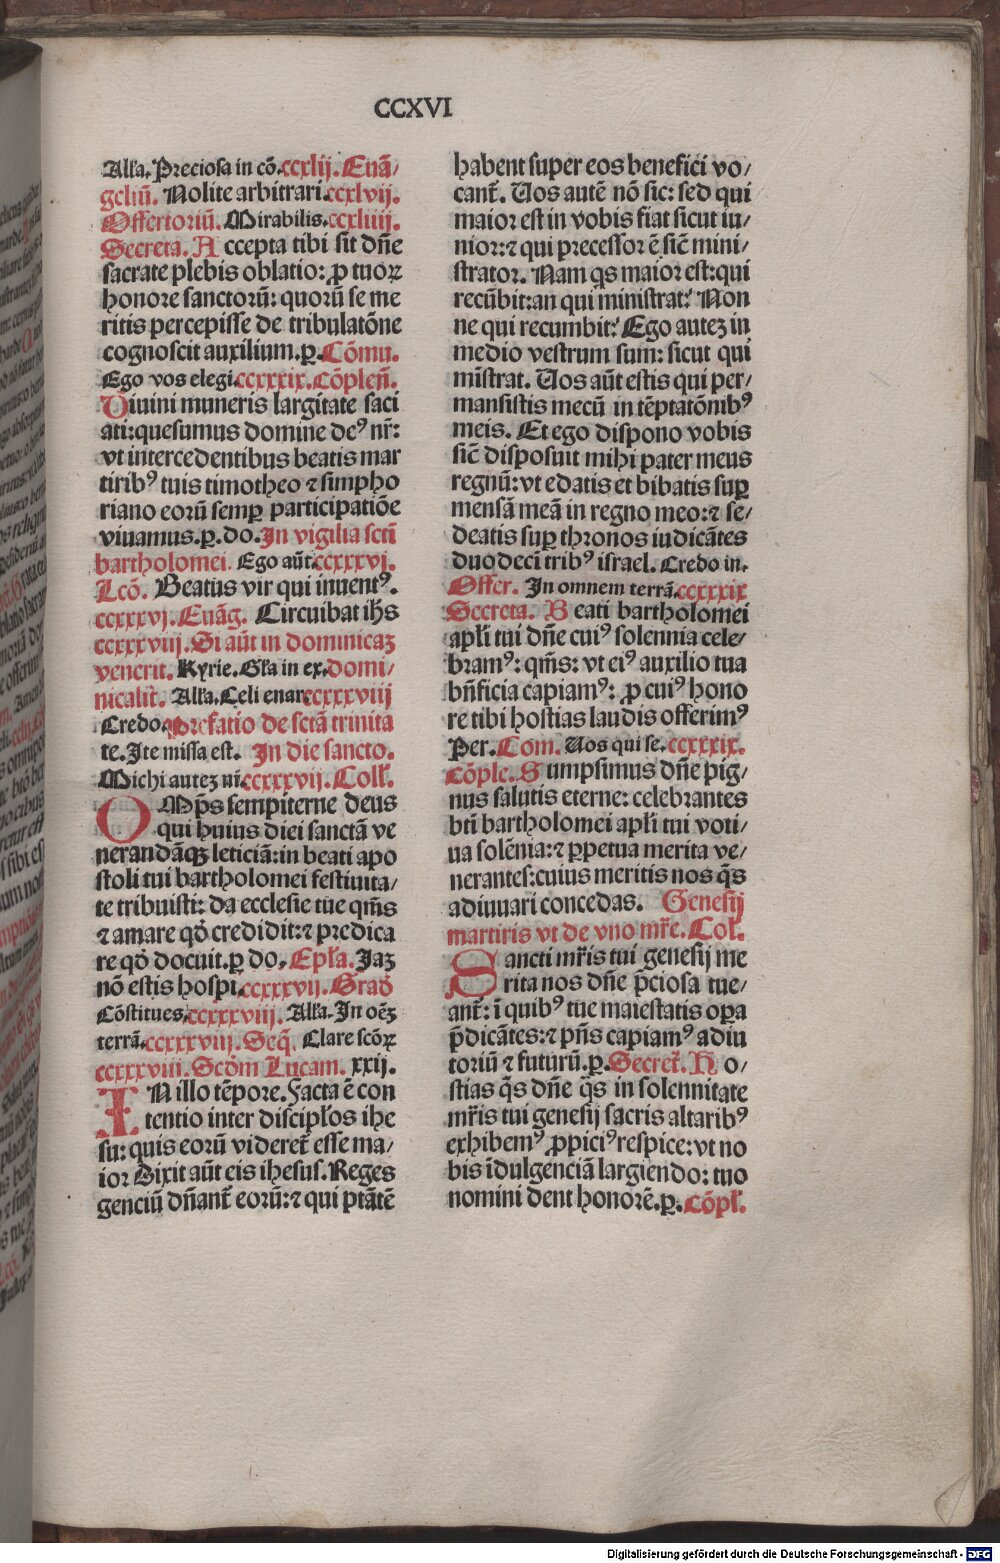 CCXVI
Alľa. Preciosa in cō. ccxlij. Euā/
geliū. Nolite arbitrari. ccxlvij.
Offertoriū. Mirabilis. ccxliiij.
Secreta. A ccepta tibi sit dn̄e
sacrate plebis oblatio: ꝓ tuoꝝ
honore sanctorū: quorū se me
ritis percepisse de tribulatōne
cognoscit auxilium. ꝑ. Cōmu.
Ego vos elegi. ccxxxix. Cōplen̄.
Diuini muneris largitate saci
ati: quesumus domine deꝰ nr̄:
vt intercedentibus beatis mar
tiribꝰ tuis timotheo ⁊ simpho
riano eorū semꝑ participatiōe
viuamus. ꝑ. do. In vigilia scti
bartholomei. Ego aūt. ccxxxvj.
Lcō. Beatus vir qui inuentꝰ.
ccxxxvj. Euāg. Circuibat ihs
ccxxxviij. Si aūt in dominicaꝫ
venerit. Kyrie. Gľa in ex. domi/
nicalit̄. Alľa. Celi enar. ccxxxviij
Credo. Prefatio de sctā trinita
te. Ite missa est. In die sancto.
Michi auteꝫ ni. ccxxxvij. Coll̄.
OMp̄s sempiterne deus
qui huius diei sanctā ve
nerandāqꝫ leticiā: in beati apo
stoli tui bartholomei festiuita/
te tribuisti: da ecclesie tue qm̄s
⁊ amare qd̄ credidit: ⁊ predica
re qd̄ docuit. ꝑ do. Epľa. Jaꝫ
nō estis hospi. ccxxxvij. Grad̄
Cōstitues. ccxxxviij. Alľa. In oēꝫ
terrā. ccxxxviij. Seq̄. Clare scōꝝ
ccxxxviii. Scd̄m Lucam. xxij.
IN illo tēpore. Facta ē con
tentio inter discipľos ihe
su: quis eorū videret̄ esse ma/
ior Dixit aūt eis ihesus. Reges
genciū dn̄ant̄ eorū: ⁊ qui ptātē
habent super eos benefici vo/
cant̄. Uos autē nō sic: sed qui
maior est in vobis fiat sicut iu/
nior: ⁊ qui precessor ē sic̄ mini/
strator. Nam qs maior est: qui
recūbit: an qui ministrat? Non
ne qui recumbit? Ego auteꝫ in
medio vestrum sum: sicut qui
mīstrat. Uos aūt estis qui per/
mansistis mecū in tēptatōnibꝰ
meis. Et ego dispono vobis
sic̄ disposuit mihi pater meus
regnū: vt edatis et bibatis suꝑ
mensā meā in regno meo: ⁊ se/
deatis suꝑ thronos iudicātes
duodeci tribꝰ israel. Credo in.
Offer. In omnem terrā. ccxxxix
Secreta. B eati bartholomei
apľi tui dn̄e cuiꝰ solennia cele/
bramꝰ: qm̄s: vt eiꝰ auxilio tua
bn̄ficia capiamꝰ: ꝓ cuiꝰ hono
re tibi hostias laudis offerimꝰ
Per. Com. Uos qui se. ccxxxix.
Cōple. S umpsimus dn̄e pig/
nus salutis eterne: celebrantes
bt̄i bartholomei apľi tui voti/
ua solēnia: ⁊ ꝑpetua merita ve/
nerantes: cuius meritis nos qs̄
adiuuari concedas. Genesij
martiris vt de vno mr̄e. Col̄.
Sancti mr̄is tui genesij me
rita nos dn̄e p̄ciosa tue/
ant̄: ī quibꝰ tue maiestatis oꝑa
p̄dicātes: ⁊ pn̄s capiamꝰ adiu
toriū ⁊ futurū. ꝑ. Secret̄. H o/
stias qs̄ dn̄e qs̄ in solennitate
mr̄is tui genesij sacris altaribꝰ
exhibemꝰ ꝓpiciꝰ respice: vt no
bis īdulgenciā largiendo: tuo
nomini dent honorē. ꝑ. Cōpl̄.
Digitalisierung gefördert durch die Deutsche Forschungsgemeinschaft - DFG